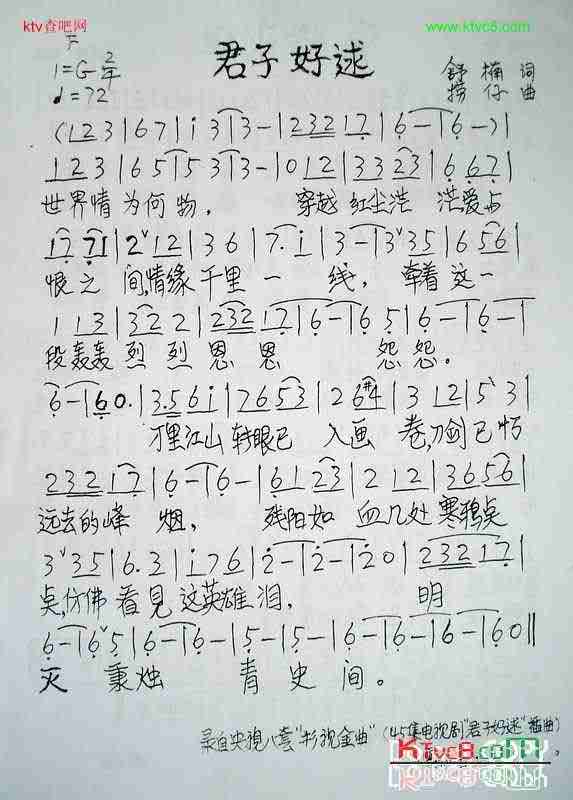 ktv查吧网
www.ktvc8.com
下
1=G 2/4
♩=72
君子好逑
舒楠 词
捞仔 曲
(1 2 3 | 6 7 | i 3 | 3 - | 2 3 2 1 7 | 6 - | 6 - ) |
1 2 3 | 6 5 | 5 3 | 3 - | 0 1 2 | 3 3 2 3 | 6 6 7 |
世界情为何物, 穿越红尘浩茫爱与
1 7 7 1 | 2 ∨ 1 2 | 3 6 | 7. i | 3 - | 3 ∨ 3 5 | 6 5 6 |
恨之间,情缘千里一线, 牵着这一
1 1 3 | 3 2 2 | 2 3 2 1 7 | 6 - | 6 5 | 6 - | 6 - |
段轰轰烈烈恩恩 怨怨。
6 - | 6 0. | 3. 5 6 i | 7 6 5 3 | 2 6 #4 | 3 1 2 | 5 ∨ 3 |
万里江山转眼已入画卷,刀剑已朽
2 3 2 1 7 | 6 - | 6 - | 6 1 2 3 | 2 1 2 | 3 6 5 6 |
远去的峰烟, 残阳如血几处寒鸦点
3 ∨ 3 5 | 6. 3 | i 7 6 | 2 - | 2 - | 2 0 | 2 3 2 1 7 |
点,仿佛看见这英雄泪, 明
6 - | 6 ∨ 5 | 6 - | 6 - | 5 - | 5 - | 6 - | 6 - | 6 - | 6 0 ||
灭 秉烛 青史间。
录自央视八套"影视金曲"(45集电视剧"君子好逑"插曲)。
KTvc8.com